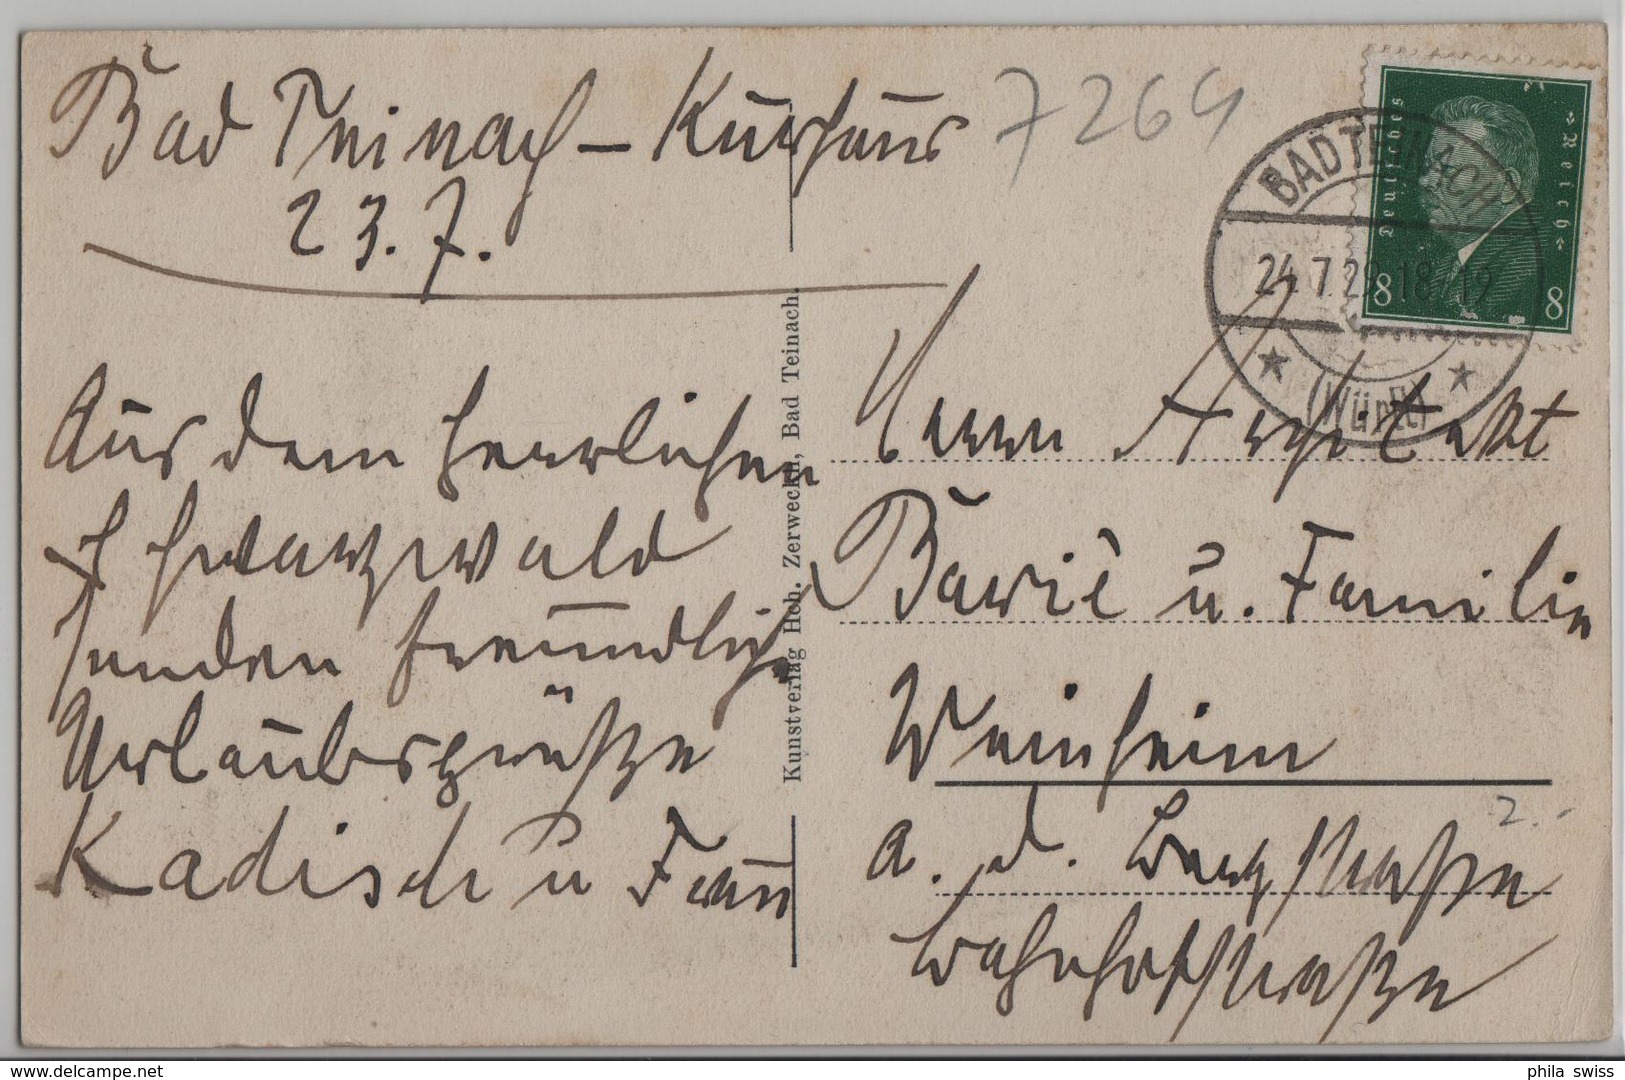 Bad Teinach – Kurhaus
23.7.
7269
Aus dem herrlichen
Schwarzwald
senden freundliche
Urlaubsgrüße
Kadisch u Frau
Kunstverlag Hch. Zerweckh, Bad Teinach.
BAD TEINACH
24.7.29.18-19
(Württ)
Deutsches Reich
8 8
Herrn Architekt
u. Familie
Weinheim
a. d. Bergstraße
2.-
Bahnhofstraße
phila swiss
delcampe.net